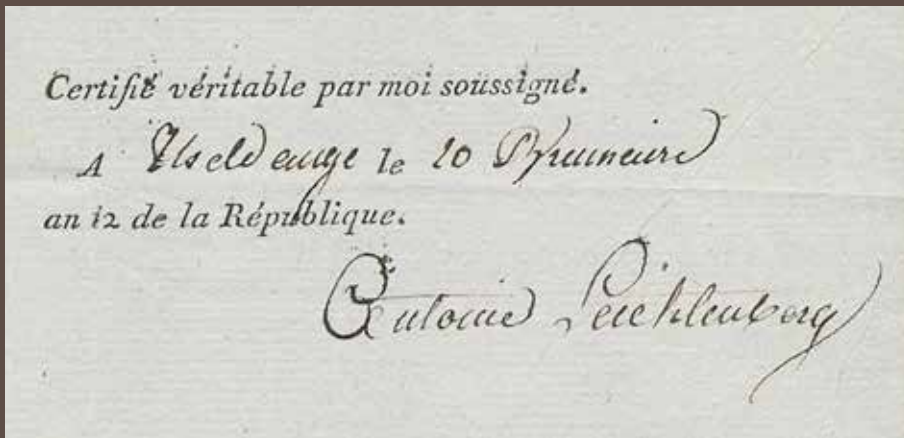 Certifié véritable par moi soussigné.
A Useldange le 20 Brumaire
an 12 de la République.
Antoine Leichtenberg